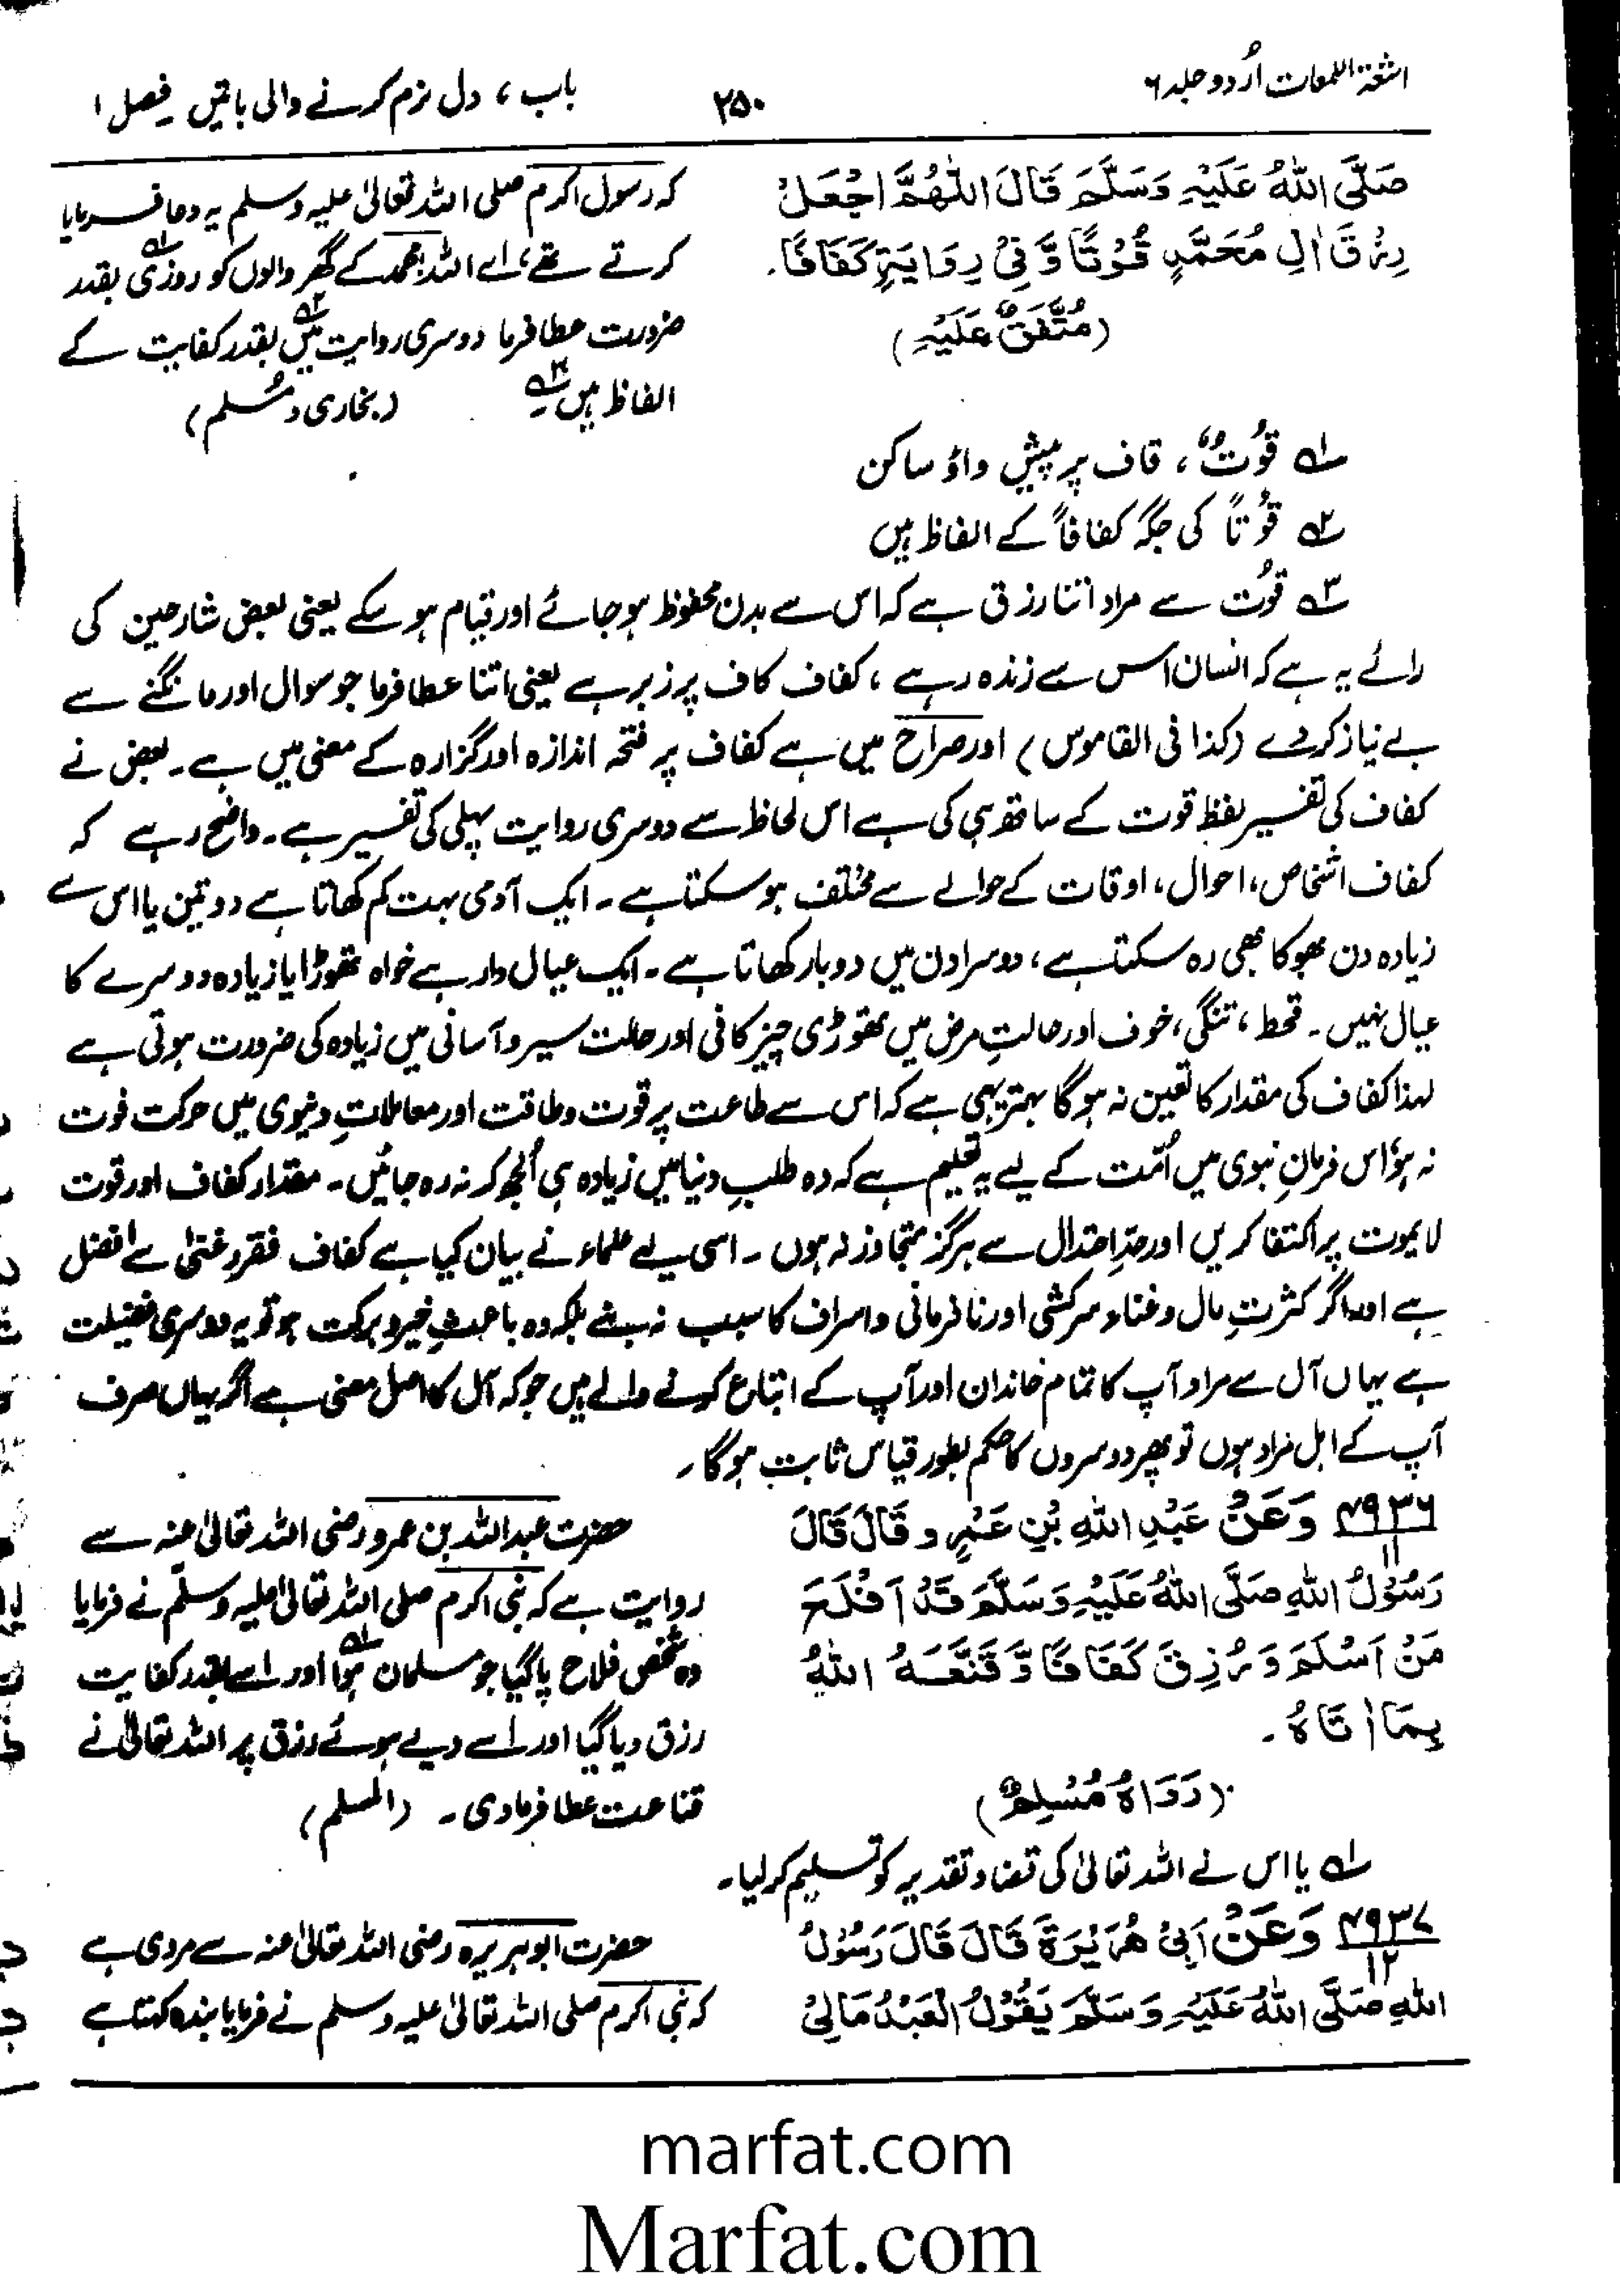 اشعۃ اللمعات اُردو جلد ۶
۲۵۰
باب، دل نرم کرنے والی باتیں فصل ۱
صَلَّى اللهُ عَلَيْهِ وَسَلَّمَ قَالَ اللّٰهُمَّ اجْعَلْ
رِزْقَ اٰلِ مُحَمَّدٍ قُوْتًا وَّفِيْ رِوَايَةٍ كَفَافًا.
(مُتَّفَقٌ عَلَيْهِ)
کہ رسول اکرم صلی اللہ تعالیٰ علیہ وسلم یہ دعا فرمایا
کرتے تھے، اے اللہ! محمد کے گھر والوں کو روزی ۱؎ بقدر
ضرورت عطا فرما دوسری روایت میں ۲؎ بقدر کفایت کے
الفاظ ہیں ۳؎۔ (بخاری و مُسلم)
۱؎ قُوْتٌ، قاف پر پیش واؤ ساکن
۲؎ قُوْتاً کی جگہ کفافاً کے الفاظ ہیں
۳؎ قُوت سے مراد اتنا رزق ہے کہ اس سے بدن محفوظ ہو جائے اور قیام ہو سکے یعنی بعض شارحین کی
رائے یہ ہے کہ انسان اس سے زندہ رہے، کفاف کاف پر زبر ہے یعنی اتنا عطا فرما جو سوال اور مانگنے سے
بے نیاز کر دے (کذا فی القاموس) اور صراح میں ہے کفاف پر فتحہ اندازہ اور گزارہ کے معنی میں ہے۔ بعض نے
کفاف کی تفسیر لفظ قوت کے ساتھ ہی کی ہے اس لحاظ سے دوسری روایت پہلی کی تفسیر ہے۔ واضح رہے کہ
کفاف اشخاص، احوال، اوقات کے حوالے سے مختلف ہو سکتا ہے۔ ایک آدمی بہت کم کھاتا ہے دو تین یا اس سے
زیادہ دن بھوکا بھی رہ سکتا ہے، دوسرا دن میں دو بار کھاتا ہے۔ ایک عیال دار ہے خواہ تھوڑا یا زیادہ دوسرے کا
عیال نہیں۔ قحط، تنگی، خوف اور حالتِ مرض میں تھوڑی چیز کافی اور حالت سیر و آسانی میں زیادہ کی ضرورت ہوتی ہے
لہذا کفاف کی مقدار کا تعین نہ ہوگا بہتر یہی ہے کہ اس سے طاعت پر قوت و طاقت اور معاملاتِ دنیوی میں حرکت فوت
نہ ہو، اس فرمانِ نبوی میں اُمّت کے لیے یہ تعلیم ہے کہ وہ طلبِ دنیا میں زیادہ ہی اُلجھ کر نہ رہ جائیں۔ مقدار کفاف اور قوت
لایموت پر اکتفا کریں اور حدِ اعتدال سے ہرگز متجاوز نہ ہوں۔ اسی لیے علماء نے بیان کیا ہے کفاف فقر و غنیٰ سے افضل
ہے اور اگر کثرتِ مال و غناء سرکشی اور نافرمانی و اسراف کا سبب نہ بنے بلکہ وہ باعثِ خیر و برکت ہو تو یہ دوسری فضیلت
ہے یہاں آل سے مراد آپ کا تمام خاندان اور آپ کے اتباع کرنے والے ہیں جو کہ آل کا اصل معنی ہے اگر یہاں صرف
آپ کے اہل مراد ہوں تو پھر دوسروں کا حکم بطور قیاس ثابت ہوگا۔
۴۹۳۶/۱۱ وَعَنْ عَبْدِ اللهِ بْنِ عَمْرٍو قَالَ قَالَ
رَسُوْلُ اللهِ صَلَّى اللهُ عَلَيْهِ وَسَلَّمَ قَدْ اَفْلَحَ
مَنْ اَسْلَمَ وَرُزِقَ كَفَافًا وَّقَنَّعَهُ اللهُ
بِمَا اٰتَاهُ۔
(رَوَاهُ مُسْلِمٌ)
حضرت عبد اللہ بن عمرو رضی اللہ تعالیٰ عنہ سے
روایت ہے کہ نبی اکرم صلی اللہ تعالیٰ علیہ وسلم نے فرمایا
وہ شخص فلاح پا گیا جو مسلمان ہوا ۱؎ اور اسے بقدر کفایت
رزق دیا گیا اور اسے دیے ہوئے رزق پر اللہ تعالیٰ نے
قناعت عطا فرما دی۔ (المسلم)
۱؎ یا اس نے اللہ تعالیٰ کی قضاء و تقدیر کو تسلیم کر لیا۔
۴۹۳۷/۱۲ وَعَنْ اَبِيْ هُرَيْرَةَ قَالَ قَالَ رَسُوْلُ
اللهِ صَلَّى اللهُ عَلَيْهِ وَسَلَّمَ يَقُوْلُ الْعَبْدُ مَالِيْ
حضرت ابوہریرہ رضی اللہ تعالیٰ عنہ سے مروی ہے
کہ نبی اکرم صلی اللہ تعالیٰ علیہ وسلم نے فرمایا بندہ کہتا ہے
marfat.com
Marfat.com